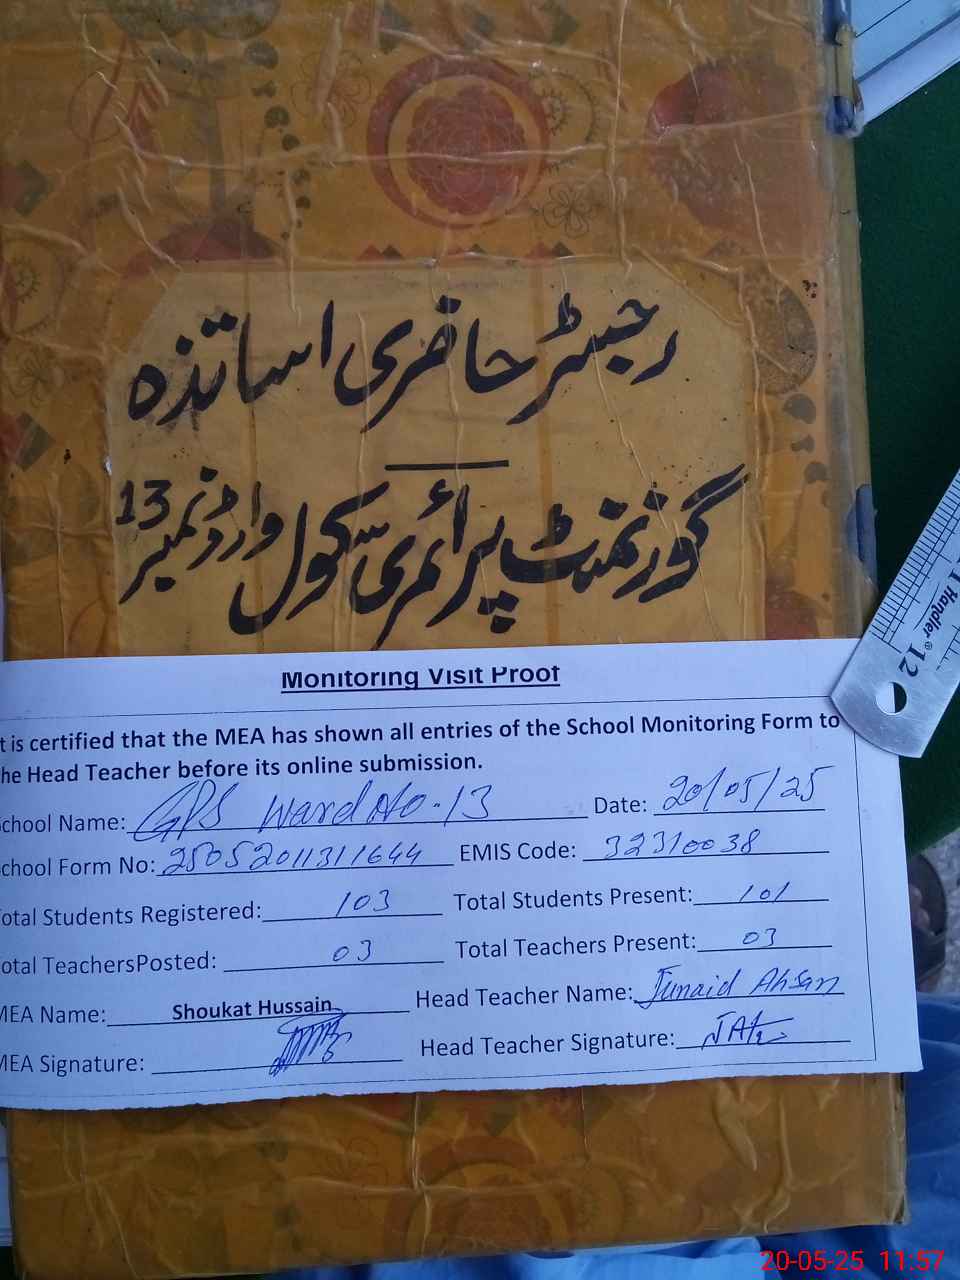 رجسٹر حاضری اساتذہ
گورنمنٹ پرائمری سکول وارڈ نمبر 13
Monitoring Visit Proof
t is certified that the MEA has shown all entries of the School Monitoring Form to
he Head Teacher before its online submission.
chool Name: GPS Ward No-13 Date: 20/05/25
chool Form No: 25052011311644 EMIS Code: 32310038
otal Students Registered: 103 Total Students Present: 101
otal TeachersPosted: 03 Total Teachers Present: 03
MEA Name: Shoukat Hussain Head Teacher Name: Junaid Ahsan
MEA Signature: Head Teacher Signature:
Handler ® 12
20-05-25 11:57